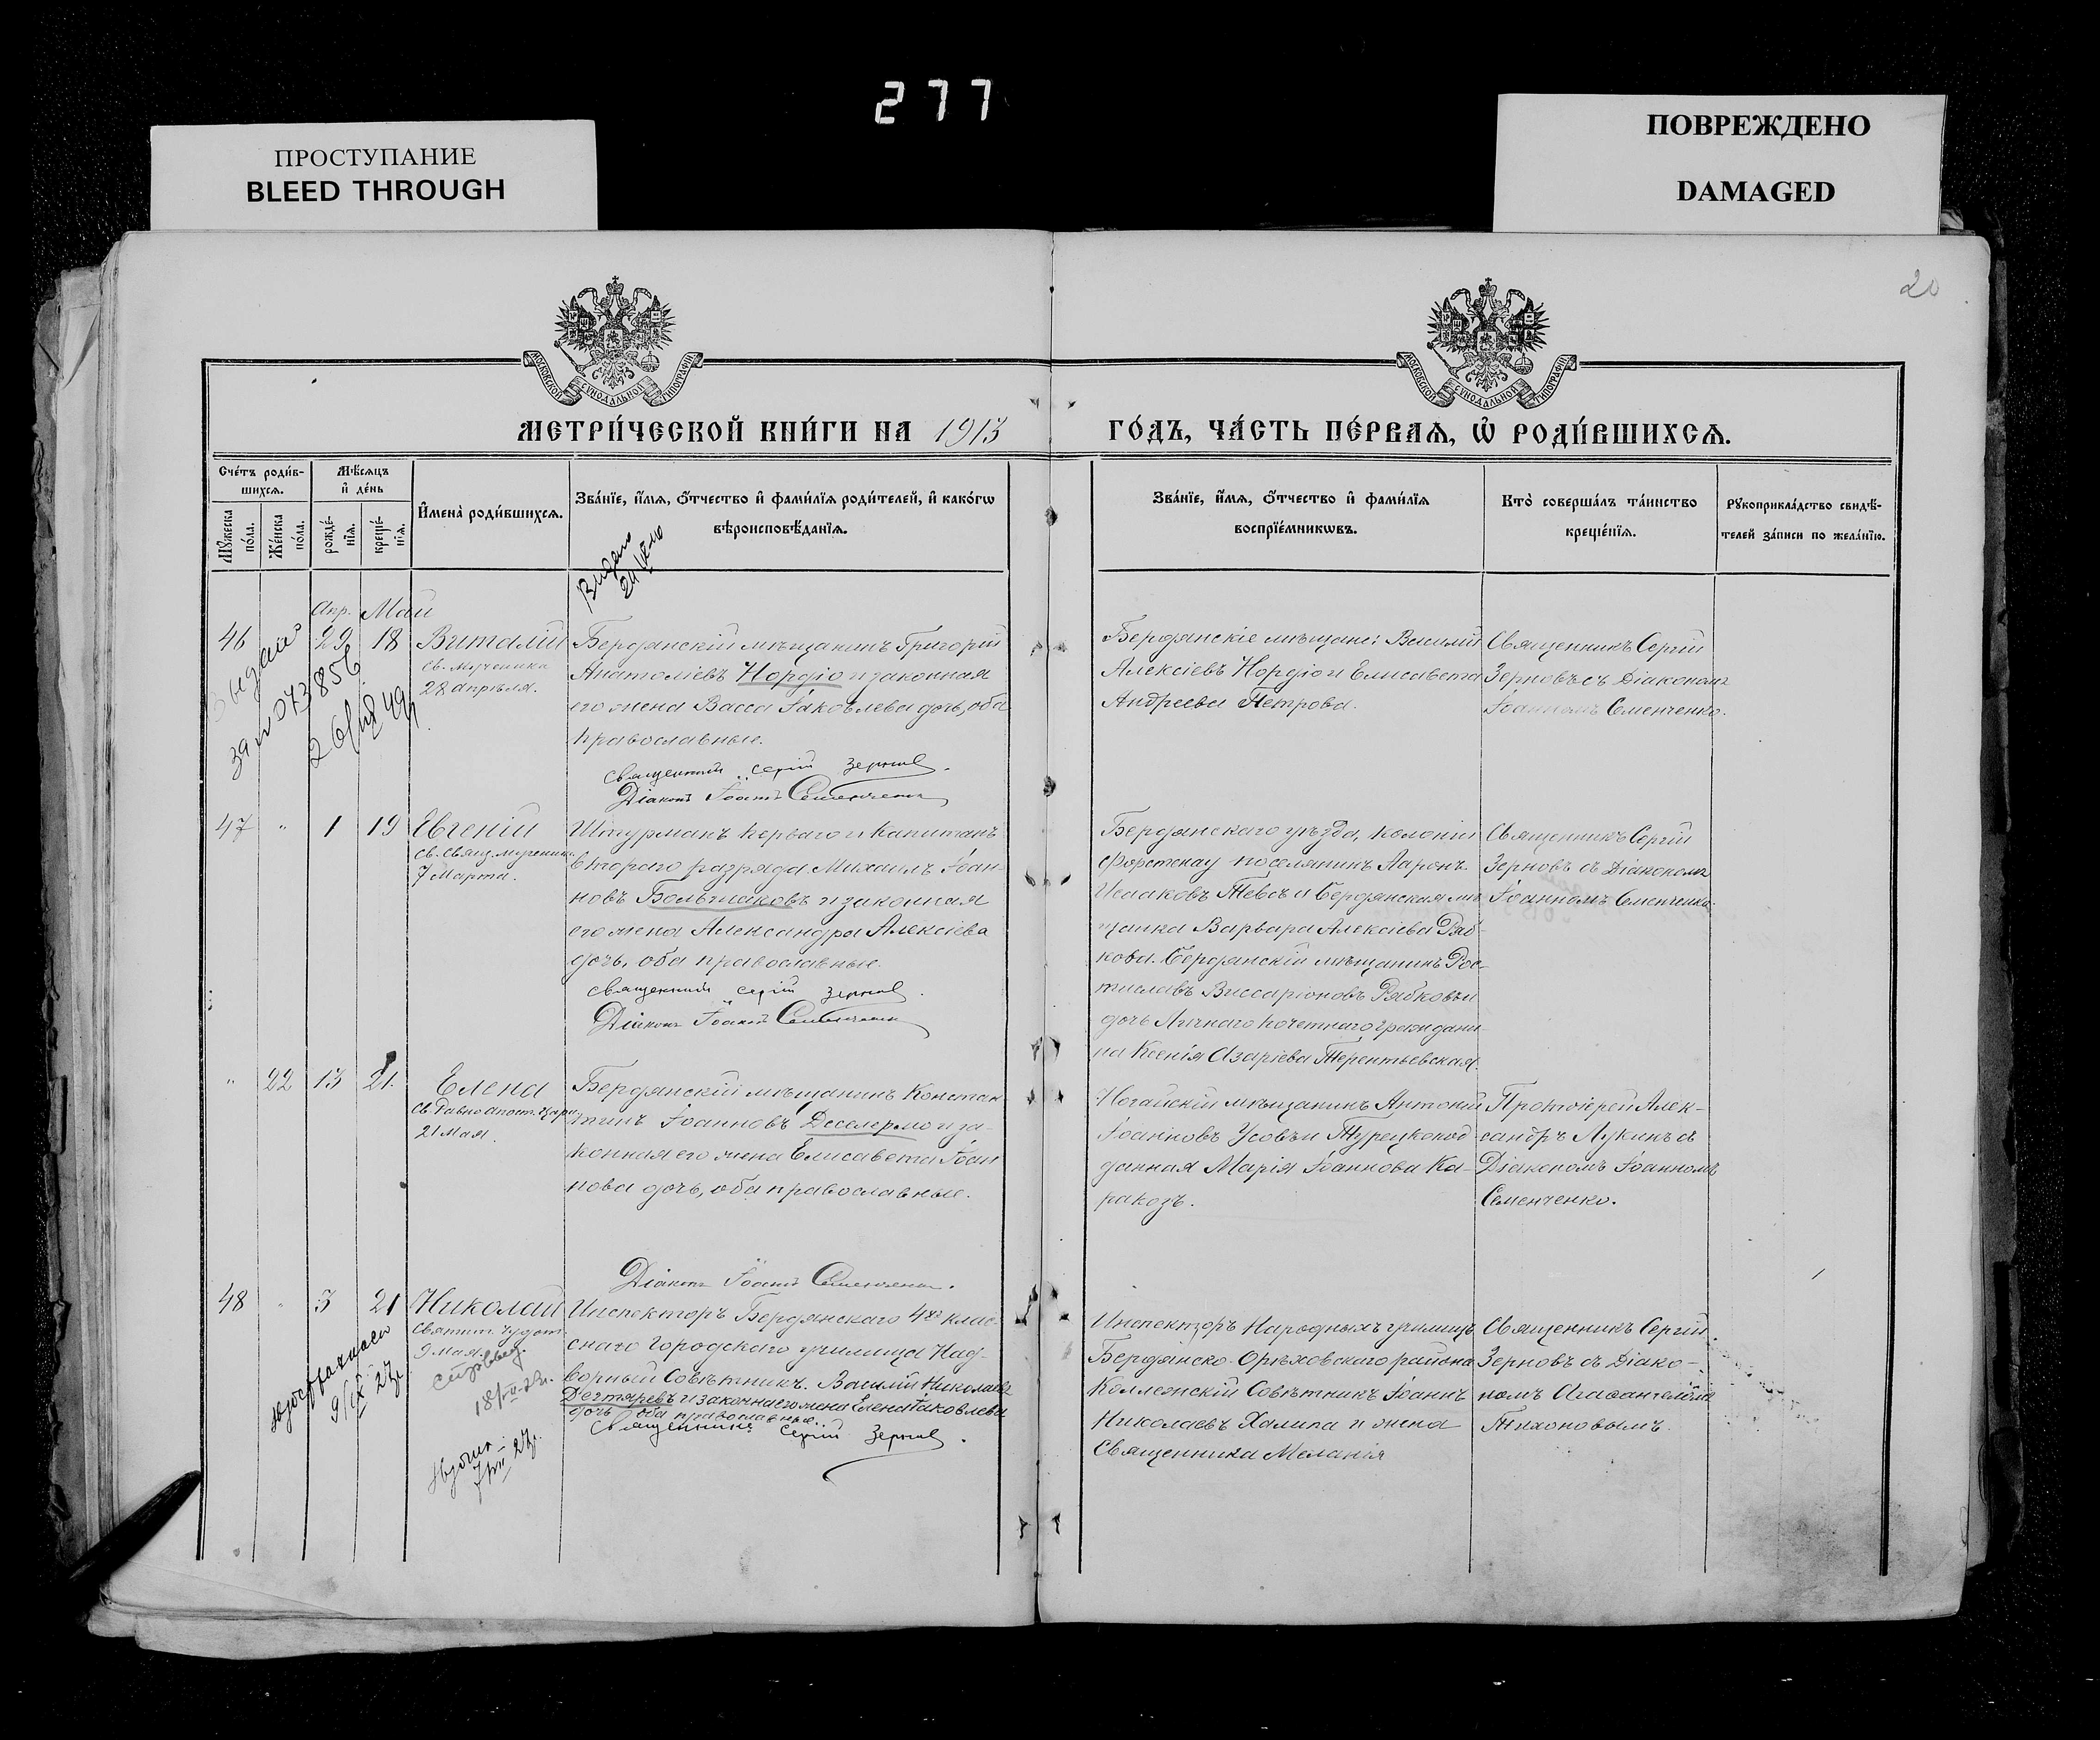 277
ПРОСТУПАНИЕ
BLEED THROUGH
ПОВРЕЖДЕНО
DAMAGED
20
МОСКОВСКОЙ СѴНОДАЛЬНОЙ ТИПОГРАФІИ
МОСКОВСКОЙ СѴНОДАЛЬНОЙ ТИПОГРАФІИ
МЕТРИ́ЧЕСКОЙ КНИ́ГИ НА 1913
ГО́ДЪ, ЧА́СТЬ ПЕ́РВАѦ, Ѡ҆ РОДИ́ВШИХСѦ.
Сче́тъ роди́в-
шихсѧ.
Мѣ́сѧцъ
и҆ де́нь
Мꙋ́жеска
по́ла.
Же́нска
по́ла.
рожде́-
нїѧ.
креще́-
нїѧ.
И҆мена̀ роди́вшихсѧ.
Зва́нїе, и҆́мѧ, ѻ҆́тчество и҆ фами́лїѧ роди́телей, и҆ како́гѡ
вѣроисповѣ́данїѧ.
Зва́нїе, и҆́мѧ, ѻ҆́тчество и҆ фами́лїѧ
воспрїе́мникѡвъ.
Кто̀ соверша́лъ та́инство
креще́нїѧ.
Рꙋкоприкла́дство свидѣ́-
телей за́писи по жела́нїю.
Апр. Май
46 22 18 Виталій
Св. мученика
28 Апрѣля.
Бердянскій мѣщанинъ Григорій
Анатоліевъ Нордіо и законная
его жена Васса Іаковлева дочь, оба
православные.
Священникъ Сергій Зерновъ.
Діаконъ Іоаннъ Семенченко
Бердянскіе мѣщане: Василій
Алексіевъ Нордіо и Елисавета
Андреева Петрова.
Священникъ Сергій
Зерновъ съ Діакономъ
Іоанномъ Семенченко.
за № 043856
47 " 1 19 Евгеній
Св. Свящ. мученик.
7 Марта.
Штурманъ перваго и Капитанъ
второго разряда Михаилъ Іоан-
новъ Большаковъ и законная
его жена Александра Алексіева
дочь, оба православные.
Священникъ Сергій Зерновъ.
Діаконъ Іоаннъ Семенченко
Бердянскаго уѣзда, колоніи
поселянинъ Ааронъ
Исааковъ Тевсъ и Бердянская мѣ-
щанка Варвара Алексіева Ряб-
кова. Бердянскій мѣщанинъ Рос-
тиславъ Виссаріоновъ Рябковъ и
дочь Личнаго почетнаго граждани-
на Ксенія Азаріева Терентьевская.
Священникъ Сергій
Зерновъ съ Діакономъ
Іоанномъ Семенченко.
" 22 13 21. Елена
Св. Равноапост. Цари.
21 Мая.
Бердянскій мѣщанинъ Констан-
тинъ Іоанновъ Деселермо и за-
конная его жена Елисавета Іоан
нова дочь, оба православные.
Діаконъ Іоаннъ Семенченко.
Ногайскій мѣщанинъ Антоній
Іоанновъ Усовъ и Турецкопод-
данная Марія Іоаннова Ка-
ракозъ.
Протоіерей Алек-
сандръ Лукинъ съ
Діакономъ Іоанномъ
Семенченко.
48 " 3 21 Николай
Святит. Чудот.
9 мая.
Инспекторъ Бердянскаго 4хъ клас-
снаго Городского училища Над-
ворный Совѣтникъ. Василій Николаевъ
Дегтяревъ и законная его жена Елена Іаковлева
дочь, оба православные.
Священникъ Сергій Зерновъ.
Инспекторъ Народныхъ училищъ
Бердянско-Орѣховскаго района
Коллежскій Совѣтникъ Іоаннъ
Николаевъ Халипа и жена
Священника Меланія
Священникъ Сергій
Зерновъ съ Діако-
номъ Агафангеломъ
Тихоновымъ.